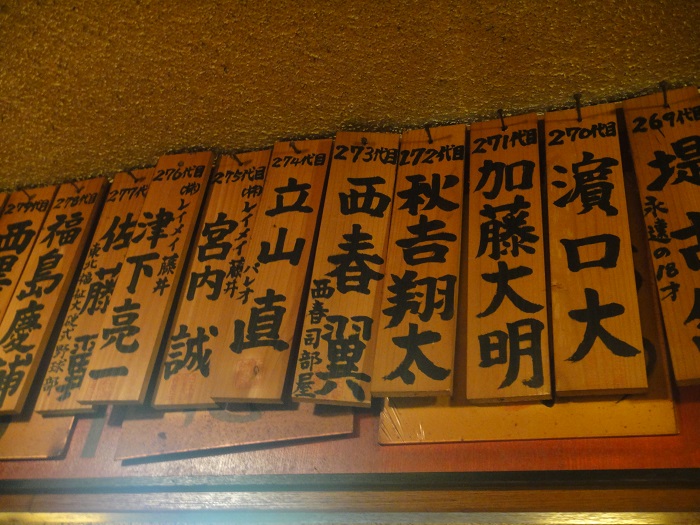 269代目
永遠の18才
堤
270代目
濵口大
271代目
加藤大明
272代目
秋吉翔太
273代目
西春翼
西春司部屋
274代目
立山直
275代目
(株)レイメイ藤井
パレオ
宮内誠
276代目
(株)レイメイ藤井
津下亮一
277代目
佐藤
278代目
福島慶輔
279代目
西